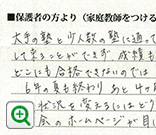 ■保護者の方より（家庭教師をつける
大手の塾と少人数の塾に通って
して来ることができず、成績も
どこにも合格できないのでは
6年の夏も終わり、あと4ヶ月
状況を変えるにはどう
会のホームページが目